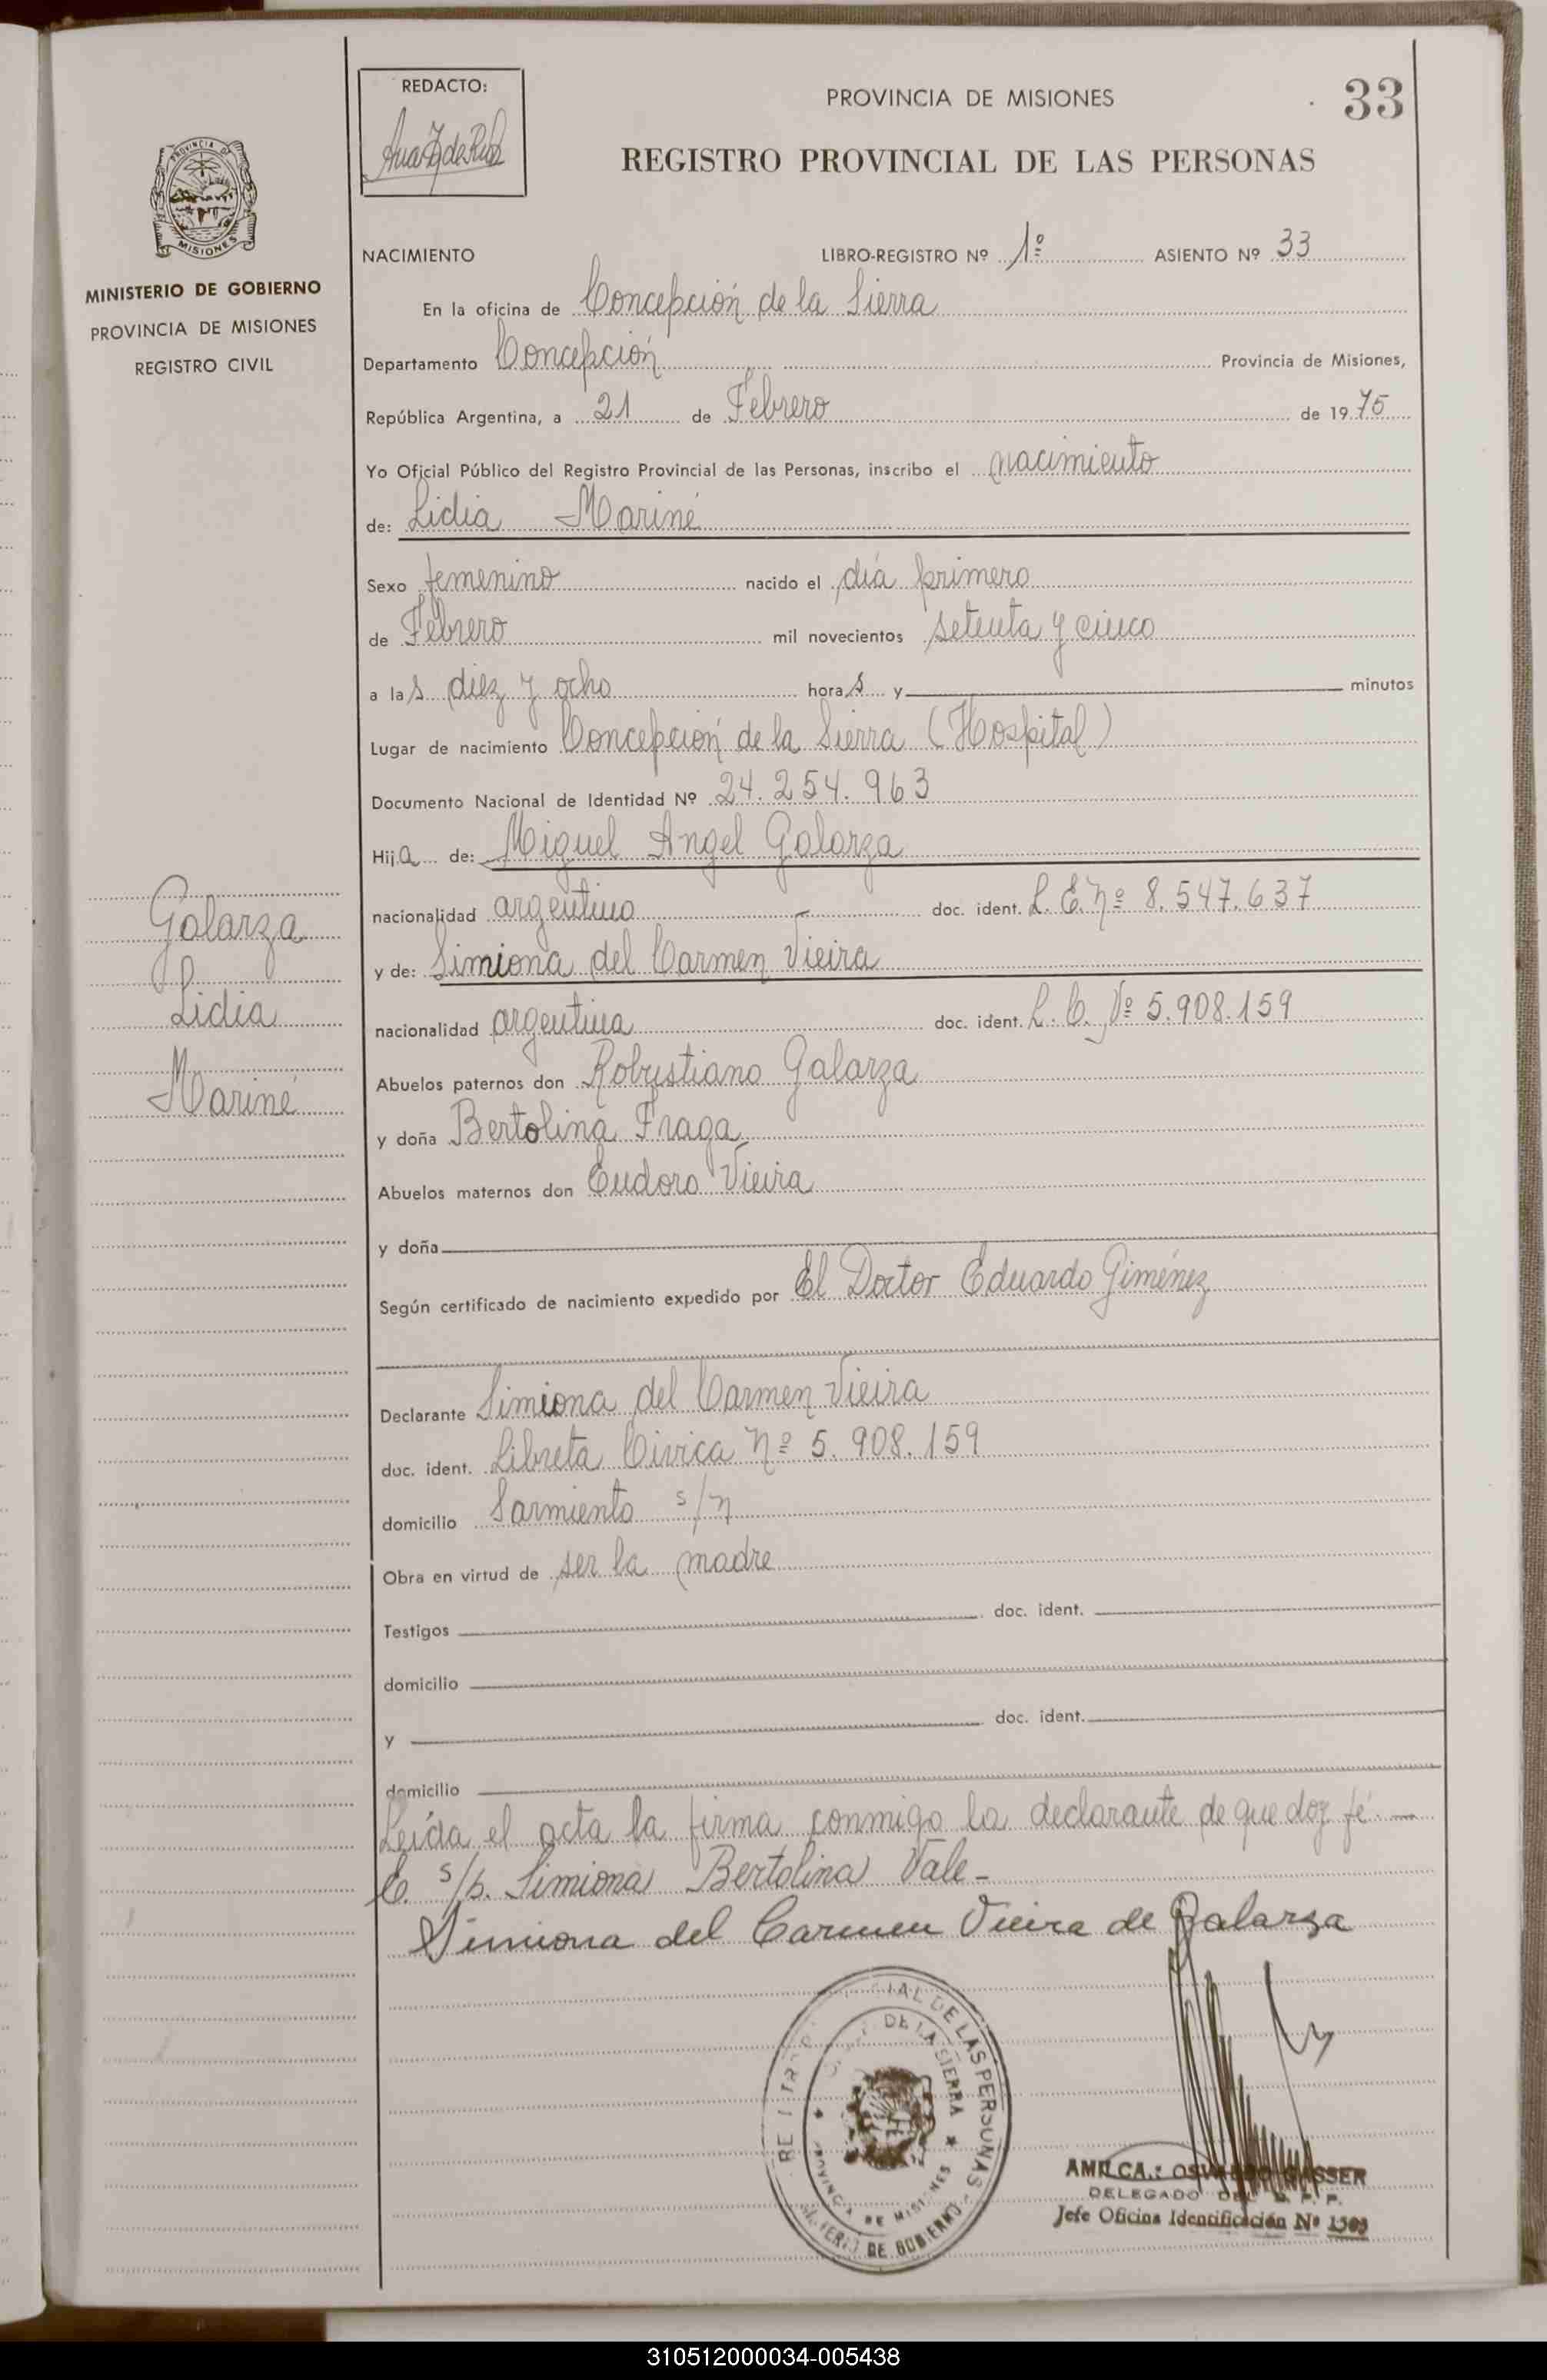 REDACTO:
PROVINCIA DE MISIONES
33
REGISTRO PROVINCIAL DE LAS PERSONAS
PROVINCIA DE
MISIONES
MINISTERIO DE GOBIERNO
PROVINCIA DE MISIONES
REGISTRO CIVIL
NACIMIENTO LIBRO-REGISTRO Nº 1º ASIENTO Nº 33
En la oficina de Concepción de la Sierra
Departamento Concepción Provincia de Misiones,
República Argentina, a 21 de Febrero de 1975
Yo Oficial Público del Registro Provincial de las Personas, inscribo el nacimiento
de: Lidia Mariné
Sexo femenino nacido el día primero
de Febrero mil novecientos setenta y cinco
a las diez y ocho horas y minutos
Lugar de nacimiento Concepción de la Sierra (Hospital)
Documento Nacional de Identidad Nº 24.254.963
Hija de: Miguel Angel Galarza
nacionalidad argentino doc. ident. L.E. Nº 8.547.637
y de: Simiona del Carmen Vieira
nacionalidad argentina doc. ident. L.C. Nº 5.908.159
Abuelos paternos don Robustiano Galarza
y doña Bertolina Fraga
Abuelos maternos don Eudoro Vieira
y doña
Según certificado de nacimiento expedido por El Doctor Eduardo Giménez
Declarante Simiona del Carmen Vieira
doc. ident. Libreta Civica Nº 5.908.159
domicilio Sarmiento s/n
Obra en virtud de ser la madre
Testigos doc. ident.
domicilio
y doc. ident.
domicilio
Leída el acta la firma conmigo la declarante de que doy fé.
E. s/b. Simiona Bertolina Vale-
Simiona del Carmen Vieira de Galarza
Galarza
Lidia
Mariné
DE LAS PERSONAS
DE LA SIERRA
PROVINCIA DE MISIONES
DE GOBIERNO
DELEGADO DEL R. P. P.
Jefe Oficina Identificación Nº
310512000034-005438